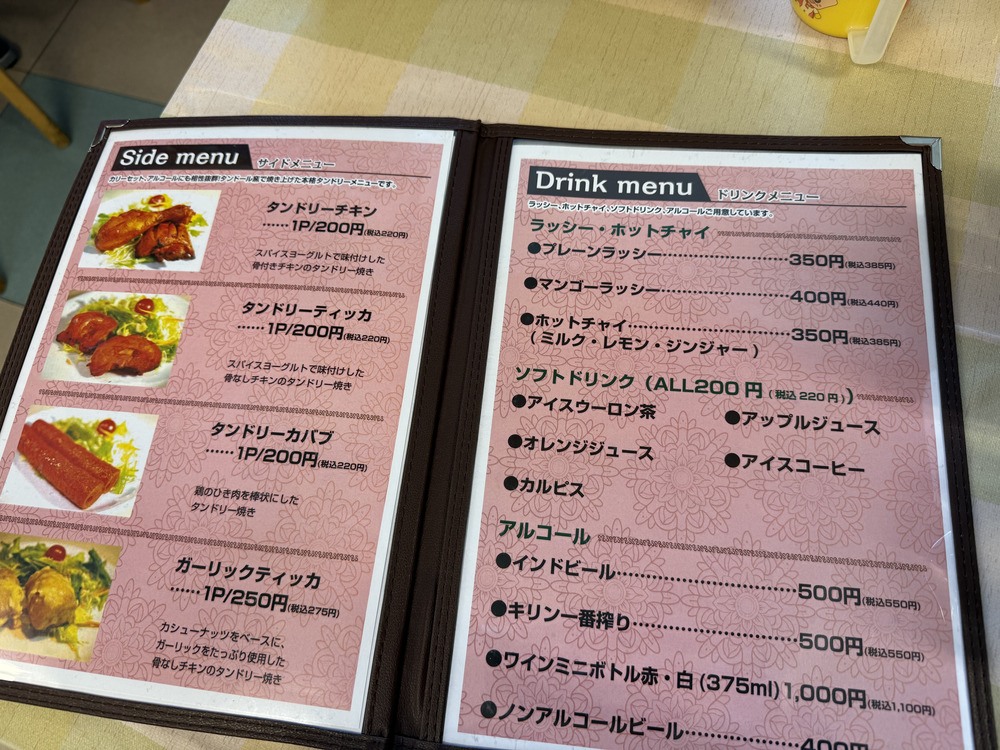 Side menu サイドメニュー
カリーセット、アルコールにも相性抜群!タンドール窯で焼き上げた本格タンドリーメニューです。
タンドリーチキン
……1P/200円(税込220円)
スパイスヨーグルトで味付けした
骨付きチキンのタンドリー焼き
タンドリーティッカ
……1P/200円(税込220円)
スパイスヨーグルトで味付けした
骨なしチキンのタンドリー焼き
タンドリーカバブ
……1P/200円(税込220円)
鶏のひき肉を棒状にした
タンドリー焼き
ガーリックティッカ
……1P/250円(税込275円)
カシューナッツをベースに、
ガーリックをたっぷり使用した
骨なしチキンのタンドリー焼き
Drink menu ドリンクメニュー
ラッシー、ホットチャイ、ソフトドリンク、アルコールご用意しています。
ラッシー・ホットチャイ
●プレーンラッシー……………………350円(税込385円)
●マンゴーラッシー……………………400円(税込440円)
●ホットチャイ…………………………350円(税込385円)
(ミルク・レモン・ジンジャー)
ソフトドリンク(ALL200円(税込220円))
●アイスウーロン茶 ●アップルジュース
●オレンジジュース ●アイスコーヒー
●カルピス
アルコール
●インドビール…………………………500円(税込550円)
●キリン一番搾り………………………500円(税込550円)
●ワインミニボトル赤・白(375ml)1,000円(税込1,100円)
●ノンアルコールビール………………400円